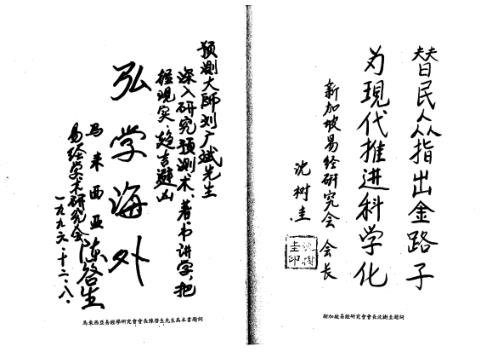 预测大师刘广斌先生
深入研究预测术、著书讲学、把
握现实 趋吉避凶
弘学海外
马来西亚
易经学术研究会陈启生
一九九六·十二·八·
馬來西亞易經學研究會會長陳啓生先生爲本書題詞
替民众指出金路子
为现代推进科学化
新加坡易经研究会会长
沈树圭
沈樹
圭印
新加坡易經研究會會長沈樹圭題詞